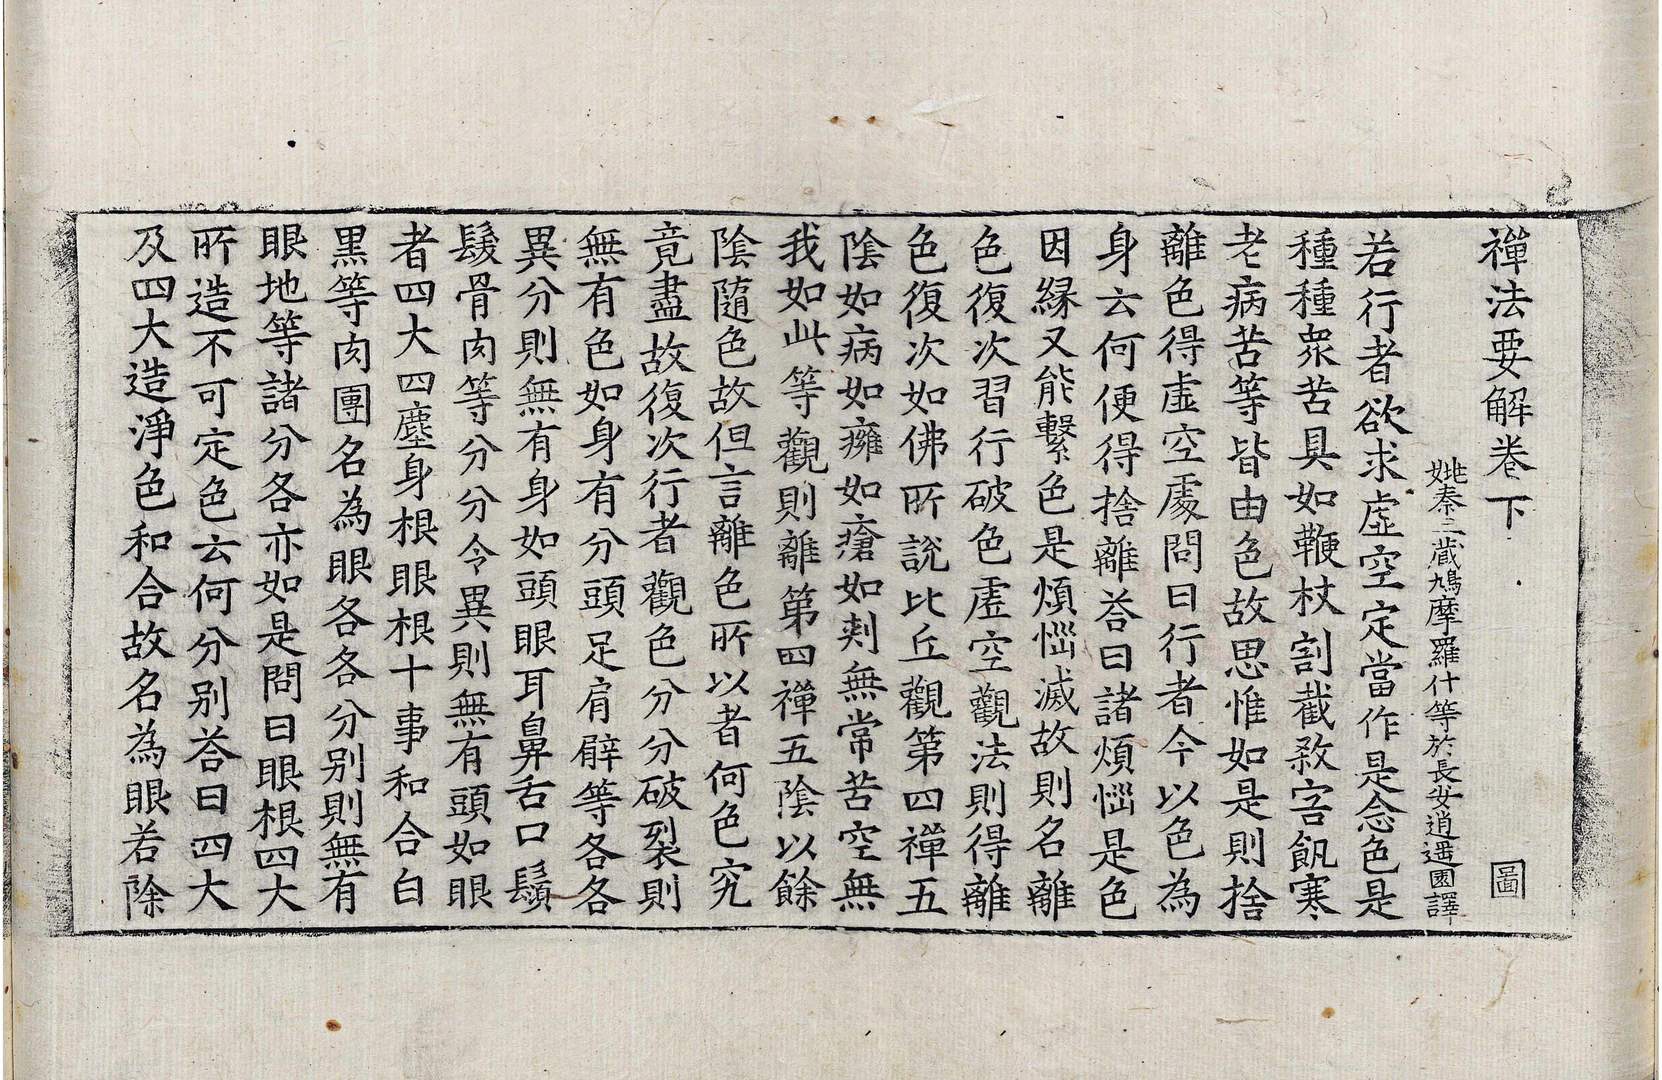 禪法要解卷下
圖
姚秦三藏鳩摩羅什等於長安逍遥園譯
若行者欲求虛空定當作是念色是
種種衆苦具如鞭杖割截殺害飢寒
老病苦等皆由色故思惟如是則捨
離色得虛空處問曰行者今以色為
身云何便得捨離荅曰諸煩惱是色
因緣又能繫色是煩惱滅故則名離
色復次習行破色虛空觀法則得離
色復次如佛所說比丘觀第四禪五
陰如病如癰如瘡如刾無常苦空無
我如此等觀則離第四禪五陰以餘
陰隨色故但言離色所以者何色究
竟盡故復次行者觀色分分破裂則
無有色如身有分頭足肩臂等各各
異分則無有身如頭眼耳鼻舌口鬚
髮骨肉等分分令異則無有頭如眼
者四大四塵身根眼根十事和合白
黑等肉團名為眼各各分别則無有
眼地等諸分各亦如是問曰眼根四大
所造不可定色云何分别荅曰四大
及四大造淨色和合故名為眼若除